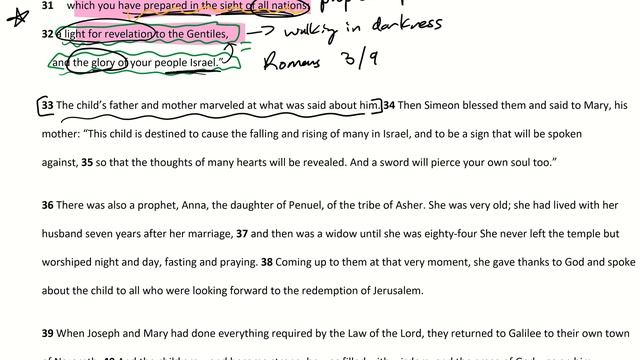 31 which you have prepared in the sight of all nations:
32 a light for revelation to the Gentiles, → walking in darkness
and the glory of your people Israel." Romans 3/9
33 The child's father and mother marveled at what was said about him. 34 Then Simeon blessed them and said to Mary, his
mother: "This child is destined to cause the falling and rising of many in Israel, and to be a sign that will be spoken
against, 35 so that the thoughts of many hearts will be revealed. And a sword will pierce your own soul too."
36 There was also a prophet, Anna, the daughter of Penuel, of the tribe of Asher. She was very old; she had lived with her
husband seven years after her marriage, 37 and then was a widow until she was eighty-four She never left the temple but
worshiped night and day, fasting and praying. 38 Coming up to them at that very moment, she gave thanks to God and spoke
about the child to all who were looking forward to the redemption of Jerusalem.
39 When Joseph and Mary had done everything required by the Law of the Lord, they returned to Galilee to their own town